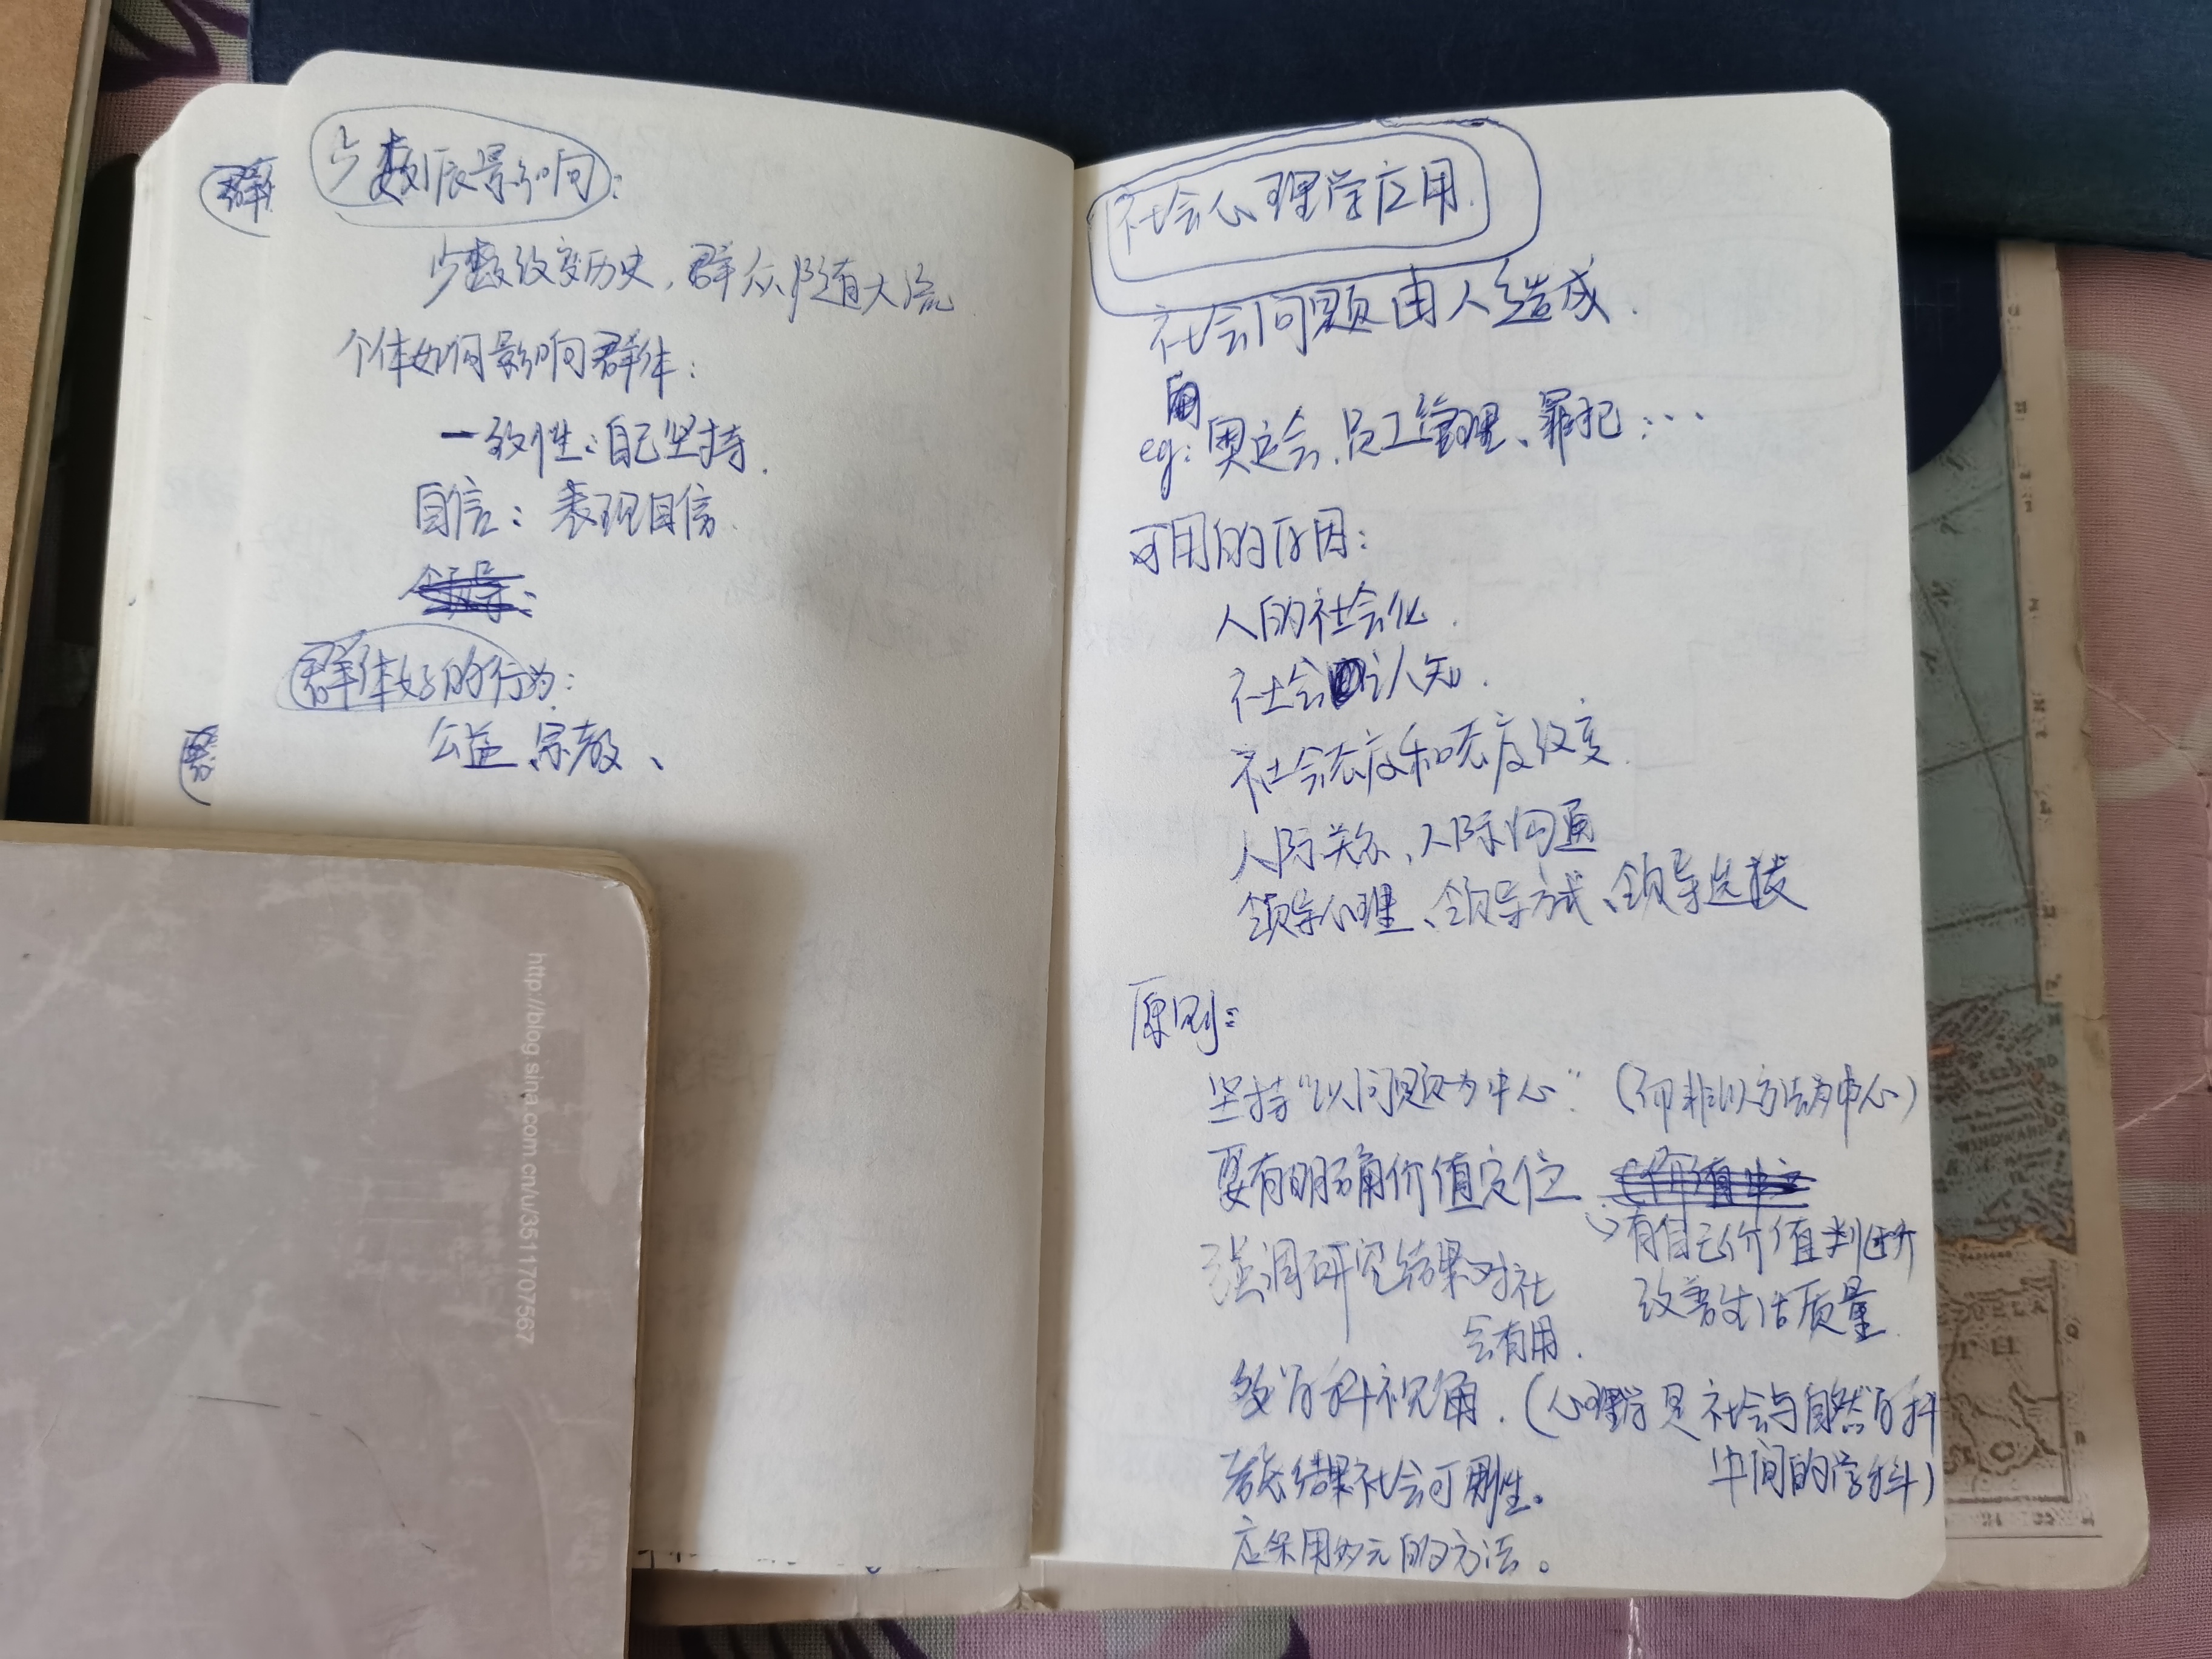 少数派影响：
少数改变历史，群众随大流
个体如何影响群体：
一致性：自己坚持.
自信：表现自信.
群体好的行为：
公益、宗教、
社会心理学应用.
社会问题由人造成.
eg：奥运会、员工管理、罪犯……
可用的原因：
人的社会化.
社会认知.
社会态度和态度改变.
人际关系、人际沟通
领导心理、领导方式、领导选拔
原则：
坚持“以问题为中心”（而非以方法为中心）
要有明确价值定位
→有自己价值判断
改善生活质量
强调研究结果对社
会有用.
多学科视角.（心理学是社会与自然学科
中间的学科）
考虑结果社会可用性。
应采用多元的方法。
http://blog.sina.com.cn/u/3511707567